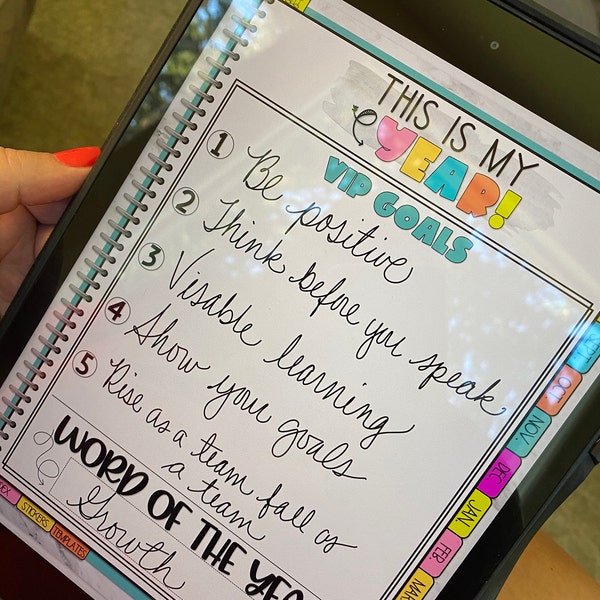 THIS IS MY
YEAR!
VIP GOALS
1 Be positive
2 Think before you speak
3 Visable learning
4 Show you goals
5 Rise as a team fall as
a team
WORD OF THE YEA
Growth
SEPT.
OCT.
NOV.
DEC.
JAN.
FEB.
MAR
STICKERS
TEMPLATES